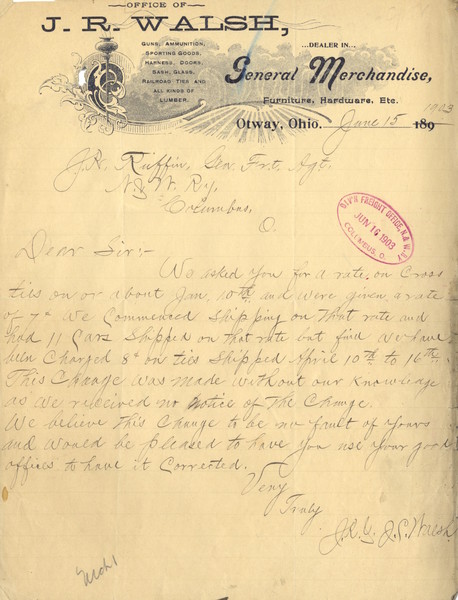 OFFICE OF
J. R. WALSH,
GUNS, AMMUNITION,
SPORTING GOODS,
HARNESS, DOORS,
SASH, GLASS,
RAILROAD TIES AND
ALL KINDS OF
LUMBER.
...DEALER IN...
General Merchandise,
Furniture, Hardware, Etc.
1903
Otway, Ohio. June 15 189
J. H. Ruffin, Gen. Frt. Agt.
N & W Ry.
Columbus,
O.
DIV'N FREIGHT OFFICE, N. & W. RY
JUN 16 1903
COLUMBUS, O.
Dear Sir:-
We asked you for a rate on Cross
ties on or about Jan. 10th and were given a rate
of 7¢ We Commenced Shipping on that rate and
had 11 Cars Shipped on that rate but find we have
been Charged 8¢ on ties Shipped April 10th to 16th.
This Change was made without our knowledge
as we received no notice of the Change.
We believe this Change to be no fault of yours
and would be pleased to have you use your good
offices to have it Corrected.
Very
Truly
J. R. & J. S. Walsh